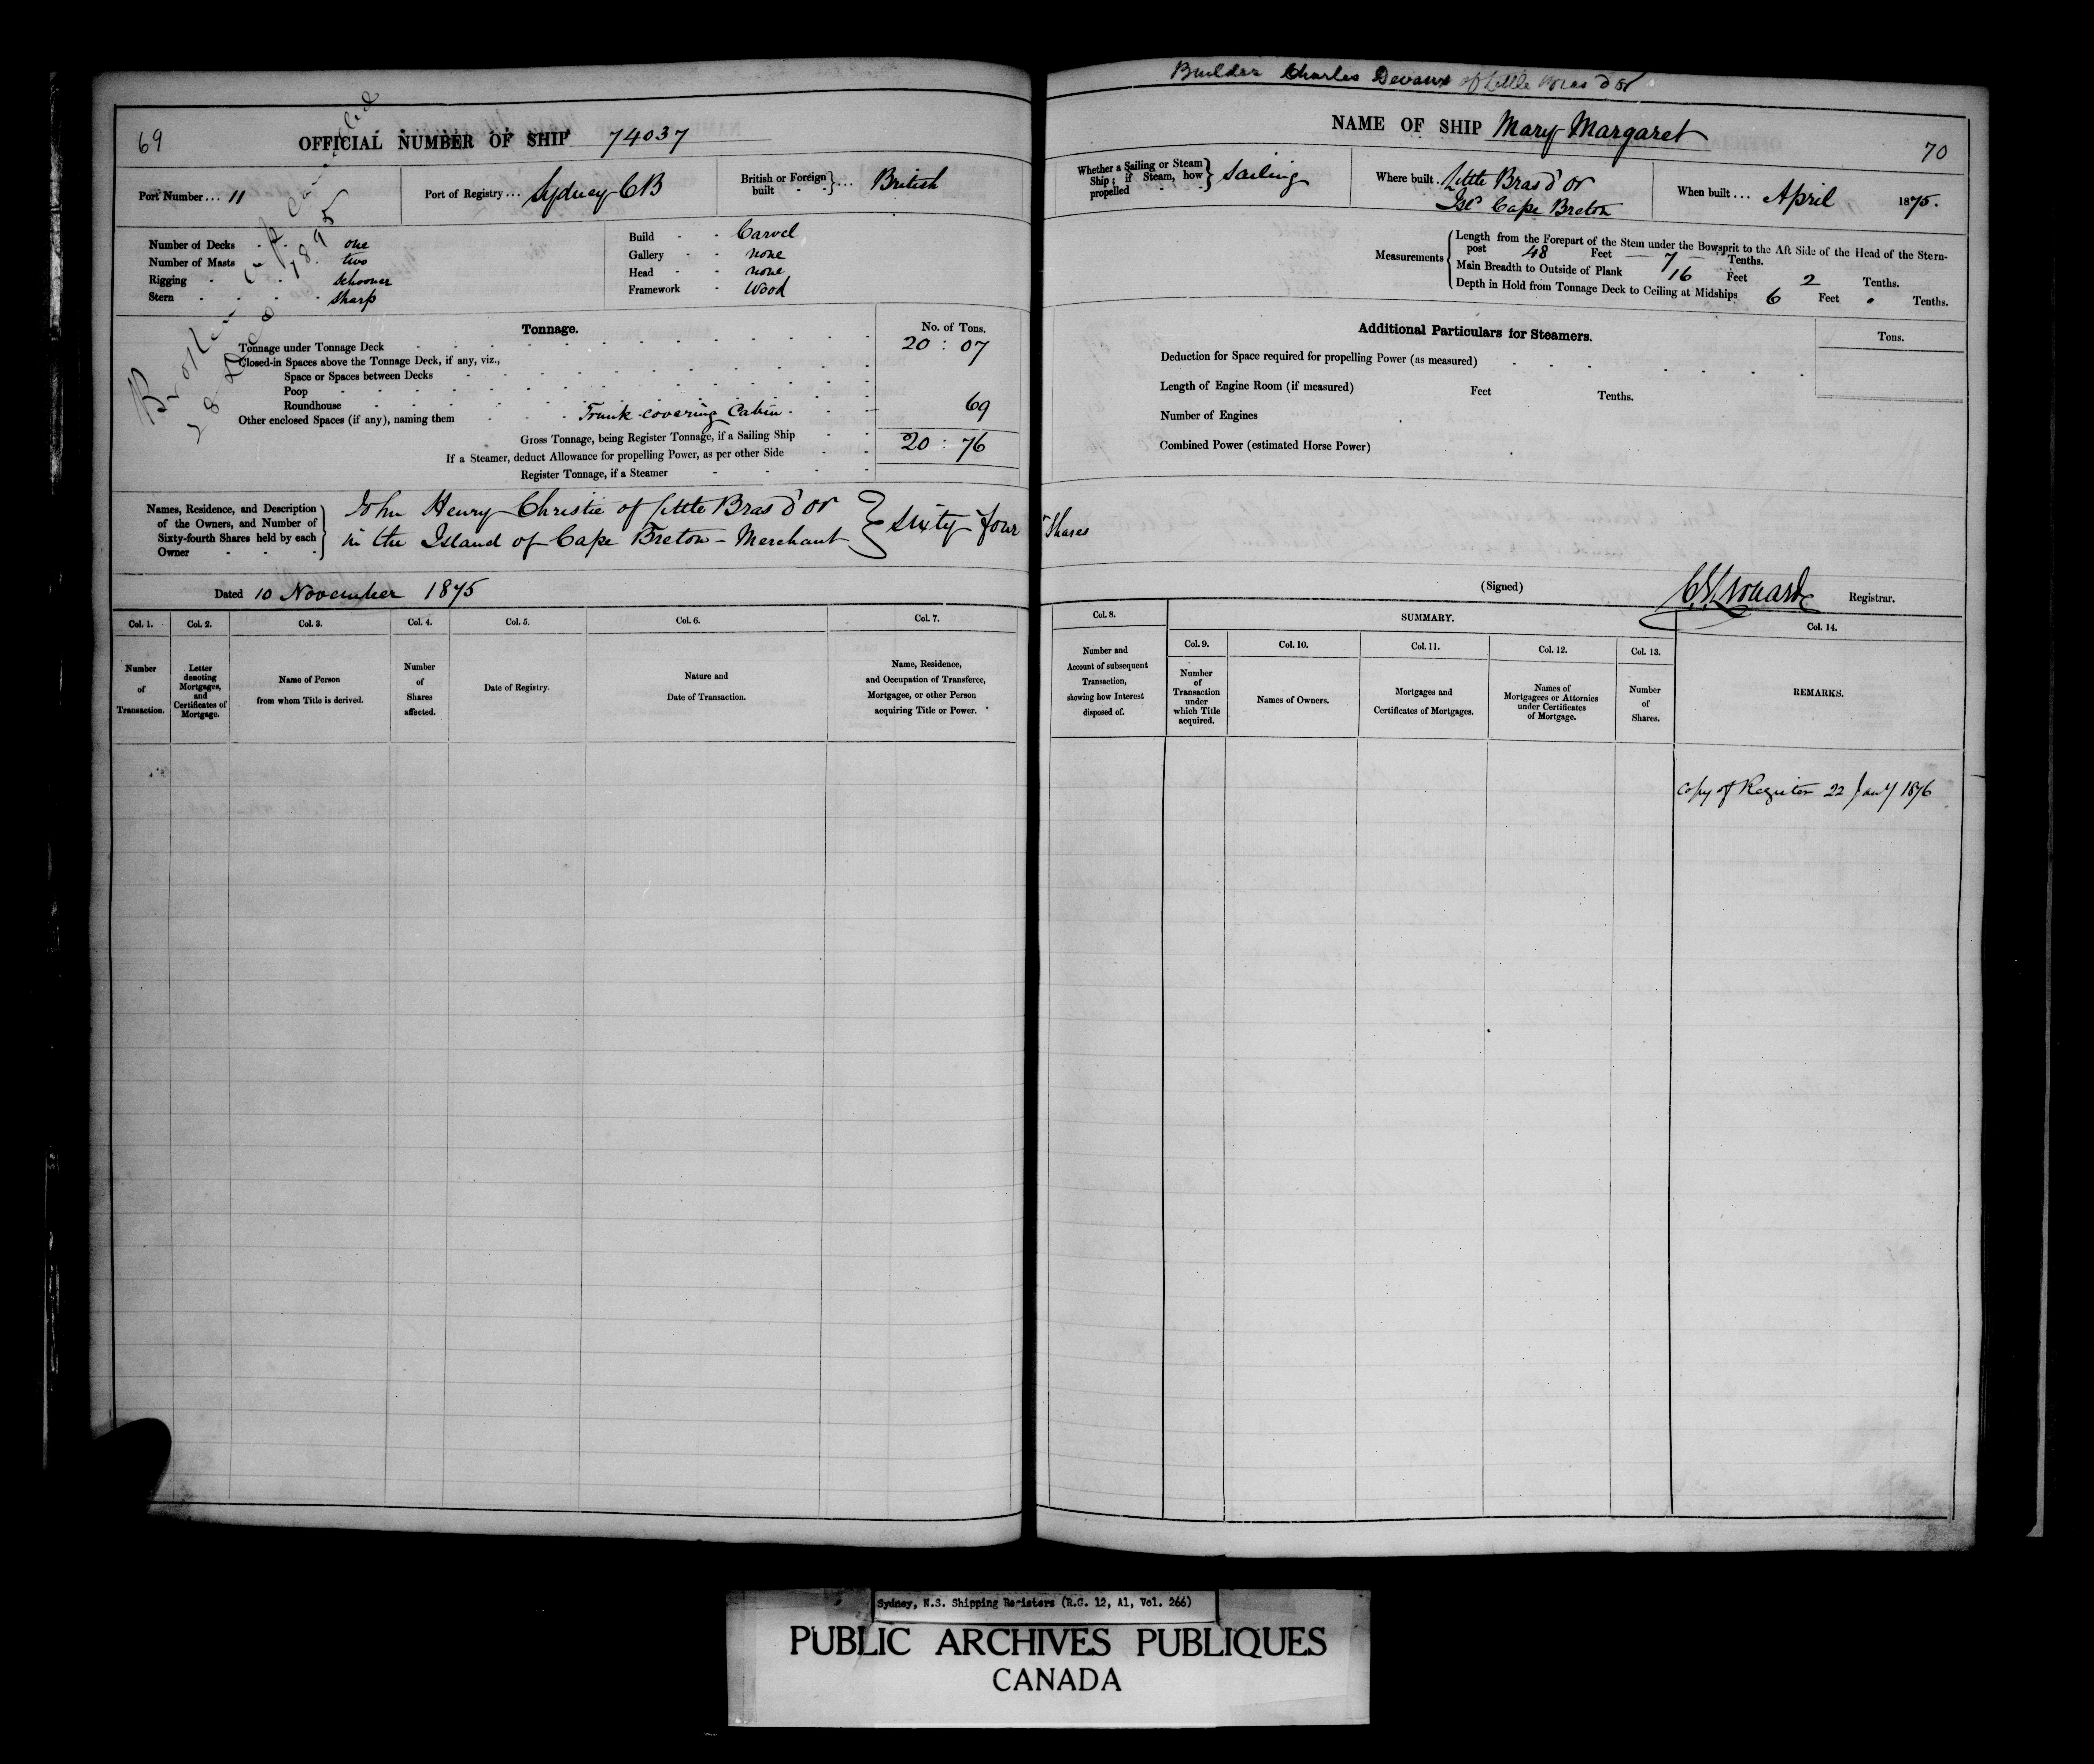 69
OFFICIAL NUMBER OF SHIP 74037
Port Number... 11
Port of Registry... Sydney CB
British or Foreign built } ... British
Number of Decks one
Number of Masts two
Rigging Schooner
Stern Sharp
Build Carvel
Gallery none
Head none
Framework Wood
Broken up
28 Dec 1895
Tonnage.
No. of Tons.
Tonnage under Tonnage Deck 20 : 07
Closed-in Spaces above the Tonnage Deck, if any, viz.,
Space or Spaces between Decks
Poop
Roundhouse
Other enclosed Spaces (if any), naming them Trunk covering Cabin 69
Gross Tonnage, being Register Tonnage, if a Sailing Ship 20 : 76
If a Steamer, deduct Allowance for propelling Power, as per other Side
Register Tonnage, if a Steamer
Names, Residence, and Description of the Owners, and Number of Sixty-fourth Shares held by each Owner
John Henry Christie of Little Bras d'or
in the Island of Cape Breton - Merchant } Sixty four Shares
Dated 10 November 1875
Col. 1.
Number of Transaction.
Col. 2.
Letter denoting Mortgages, and Certificates of Mortgage.
Col. 3.
Name of Person from whom Title is derived.
Col. 4.
Number of Shares affected.
Col. 5.
Date of Registry.
Col. 6.
Nature and Date of Transaction.
Col. 7.
Name, Residence, and Occupation of Transferee, Mortgagee, or other Person acquiring Title or Power.
Builder Charles Devaux of Little Bras d'or
NAME OF SHIP Mary Margaret
70
Whether a Sailing or Steam Ship; if Steam, how propelled } Sailing
Where built.. Little Bras d'or
Isld Cape Breton
When built ... April 1875.
Measurements
Length from the Forepart of the Stem under the Bowsprit to the Aft Side of the Head of the Stern-
post 48 Feet 7 Tenths.
Main Breadth to Outside of Plank 16 Feet 2 Tenths.
Depth in Hold from Tonnage Deck to Ceiling at Midships 6 Feet " Tenths.
Additional Particulars for Steamers.
Tons.
Deduction for Space required for propelling Power (as measured)
Length of Engine Room (if measured) Feet Tenths.
Number of Engines
Combined Power (estimated Horse Power)
(Signed) Registrar.
Col. 8.
Number and Account of subsequent Transaction, showing how Interest disposed of.
SUMMARY.
Col. 9.
Number of Transaction under which Title acquired.
Col. 10.
Names of Owners.
Col. 11.
Mortgages and Certificates of Mortgages.
Col. 12.
Names of Mortgagees or Attornies under Certificates of Mortgage.
Col. 13.
Number of Shares.
Col. 14.
REMARKS.
Copy of Register 22 Jany 1876
Sydney, N.S. Shipping Registers (R.G. 12, A1, Vol. 266)
PUBLIC ARCHIVES PUBLIQUES
CANADA